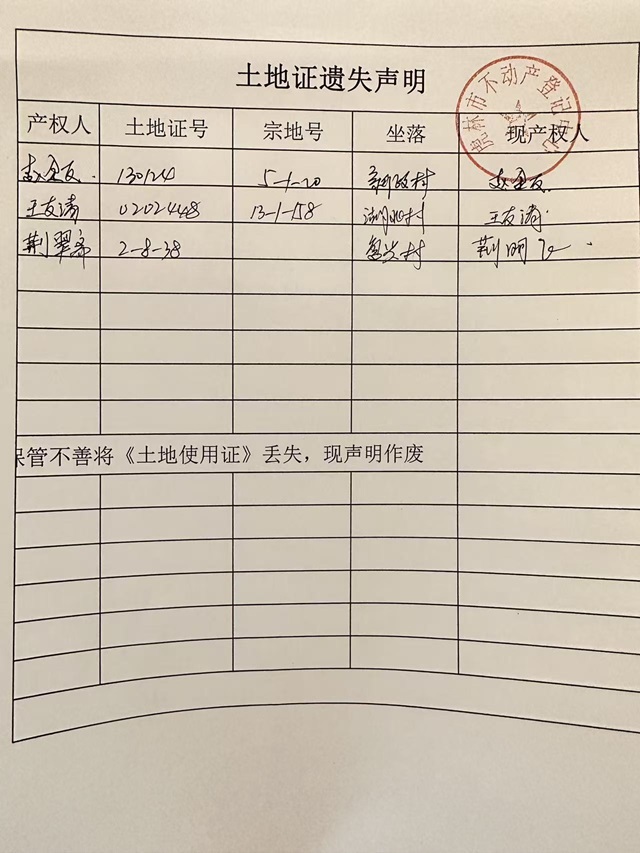 土地证遗失声明
虎林市不动产登记中心
产权人 土地证号 宗地号 坐落 现产权人
赵金友 130124 5-1-20 新政村 赵金友
王友涛 0202448 13-1-158 村 王友涛
荆翠 2-8-38 复兴村 荆明
保管不善将《土地使用证》丢失，现声明作废